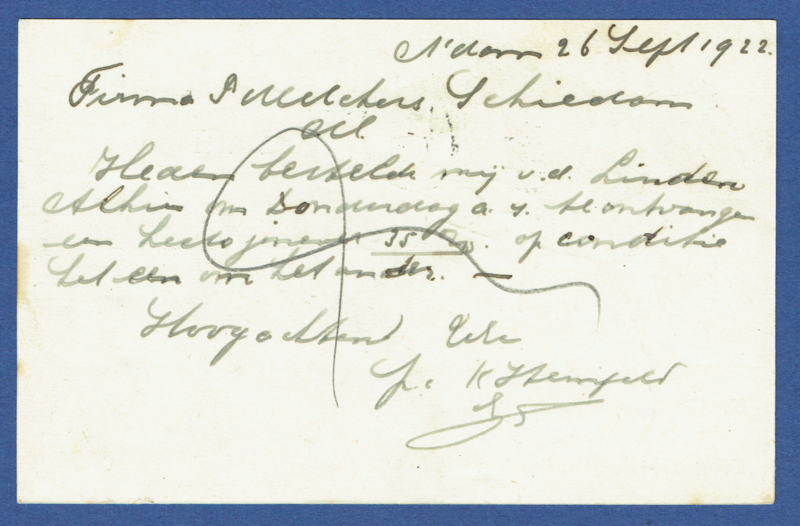 A'dam 26 Sept 1922.
Firma P Melchers. Schiedam
MH.
Heden bestelde mij v.d. Linden
Alhier om Donderdag a.s. te ontvangen
een hecto jenever 35 op conditie
het een om het ander. —
Hoogachtend Uw